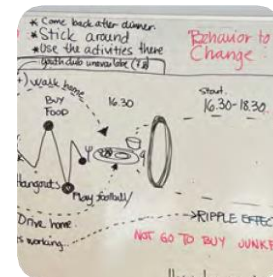 * Come back after dinner
* Stick around
* Use the activities there
youth club
Behavior to
Change:
walk home
BUY
FOOD
16.30
Start.
16.30-18.30
Hangouts
Play football/
Drive home
s working...
RIPPLE EFFEC
NOT GO TO BUY JUNKF